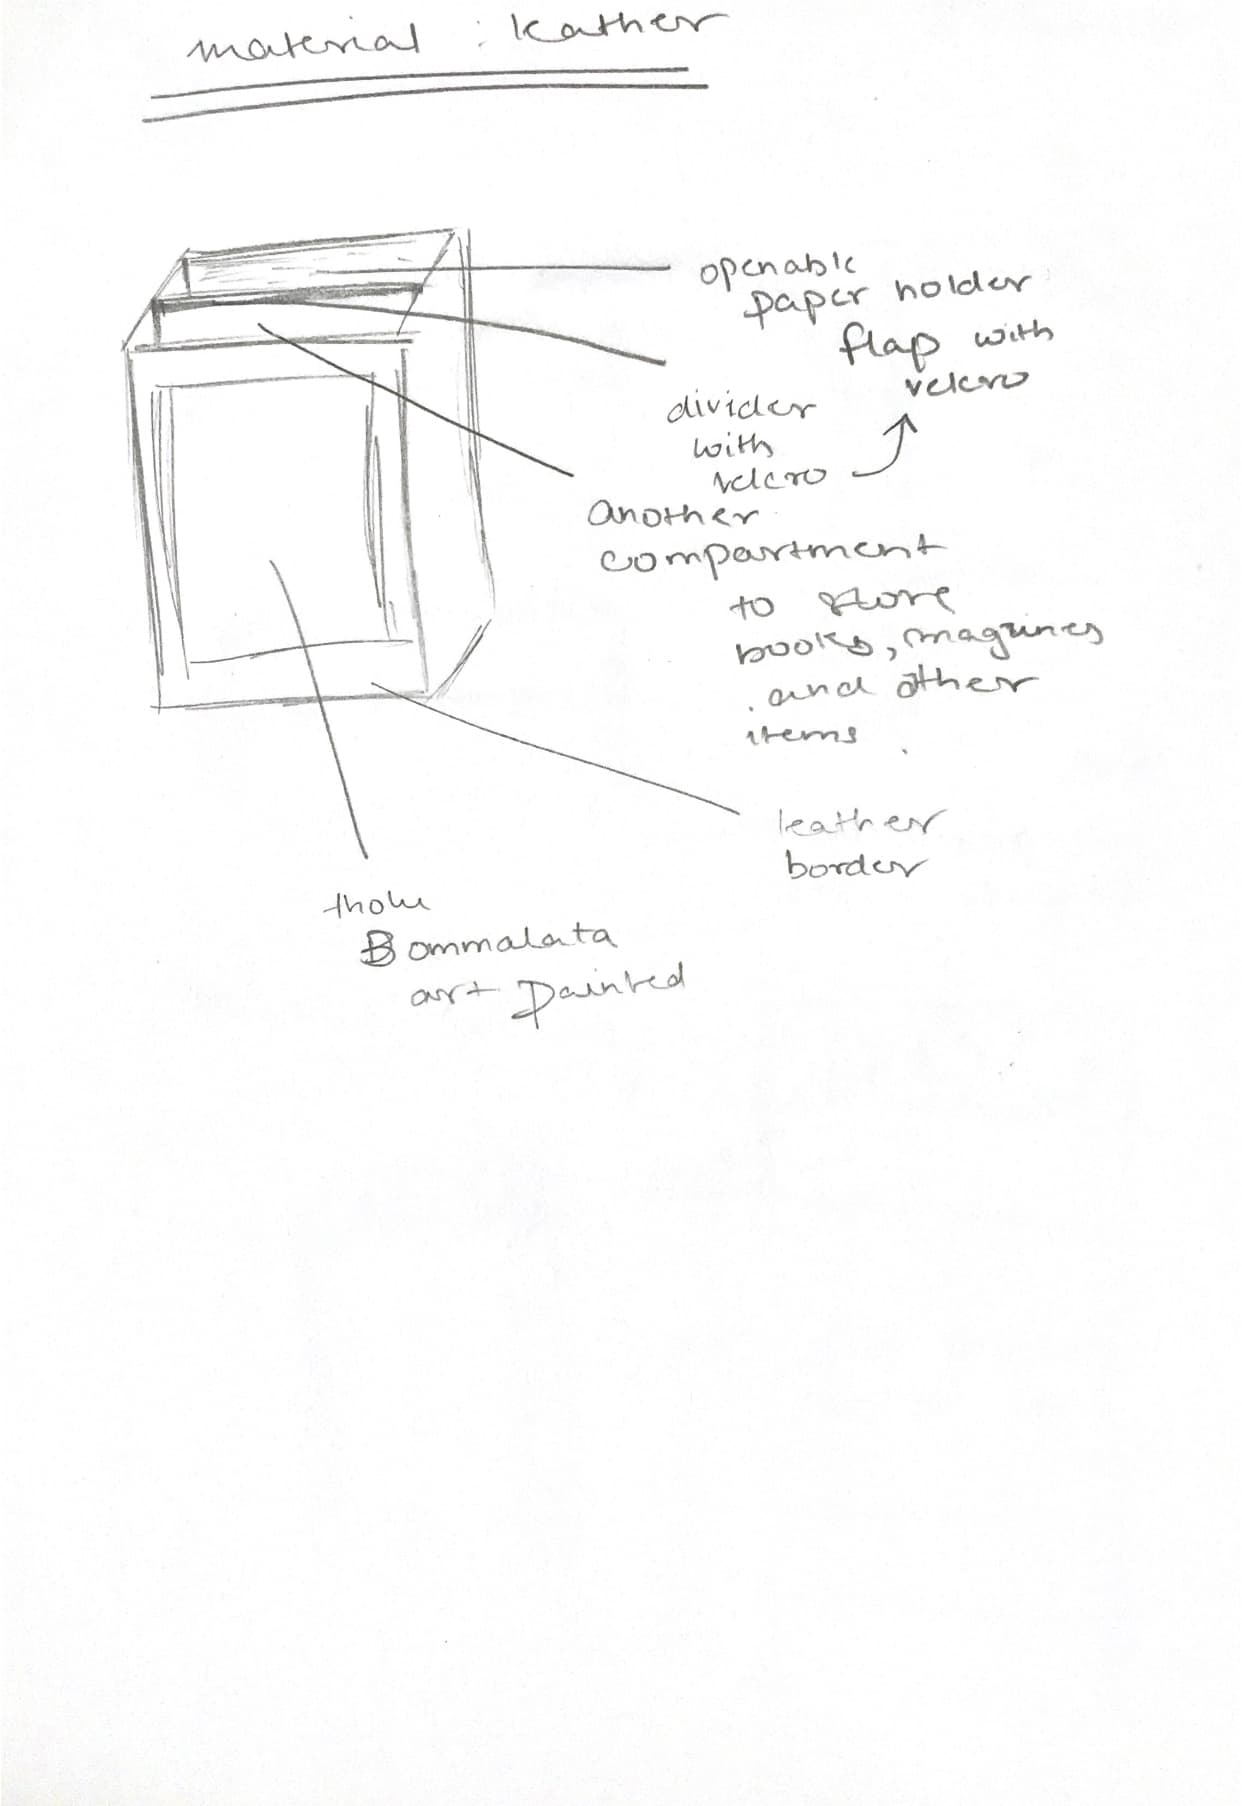 material : leather
openable
paper holder
flap with
velcro
divider
with
velcro
another
compartment
to store
books, magzines
and other
items.
leather
border
tholu
Bommalata
art painted